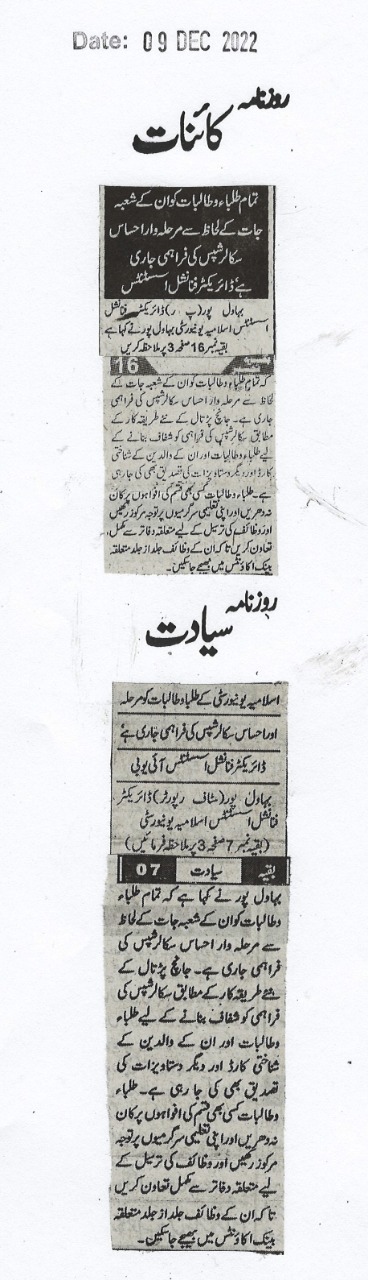 Date: 09 DEC 2022
روزنامہ
کائنات
تمام طلباء و طالبات کو ان کے شعبہ
جات کے لحاظ سے مرحلہ وار احساس
سکالرشپس کی فراہمی جاری
ہے ڈائریکٹر فنانشل اسسٹنٹس
بہاول پور (پ ر) ڈائریکٹر فنانشل
اسسٹنٹس اسلامیہ یونیورسٹی بہاول پور نے کہا ہے
بقیہ نمبر 16 صفحہ 3 پر ملاحظہ کریں
16
کہ تمام طلباء و طالبات کو ان کے شعبہ جات کے
لحاظ سے مرحلہ وار احساس سکالرشپس کی فراہمی
جاری ہے۔ جانچ پڑتال کے نئے طریقہ کار کے
مطابق سکالرشپس کی فراہمی کو شفاف بنانے کے
لیے طلباء و طالبات اور ان کے والدین کے شناختی
کارڈ اور دیگر دستاویزات کی تصدیق بھی کی جا رہی
ہے۔ طلباء و طالبات کسی بھی قسم کی افواہوں پر کان
نہ دھریں اور اپنی تعلیمی سرگرمیوں پر توجہ مرکوز رکھیں
اور وظائف کی ترسیل کے لیے متعلقہ دفاتر سے مکمل
تعاون کریں تاکہ ان کے وظائف جلد از جلد متعلقہ
بینک اکاؤنٹس میں بھیجے جا سکیں۔
روزنامہ
سیادت
اسلامیہ یونیورسٹی کے طلبا و طالبات کو مرحلہ
اور احساس سکالرشپس کی فراہمی جاری ہے
ڈائریکٹر فنانشل اسسٹنٹس آئی یو بی
بہاول پور (سٹاف رپورٹر) ڈائریکٹر
فنانشل اسسٹنٹس اسلامیہ یونیورسٹی
(بقیہ نمبر 7 صفحہ 3 پر ملاحظہ فرمائیں)
بقیہ سیادت 07
بہاول پور نے کہا ہے کہ تمام طلباء
و طالبات کو ان کے شعبہ جات کے لحاظ
سے مرحلہ وار احساس سکالرشپس کی
فراہمی جاری ہے۔ جانچ پڑتال کے
نئے طریقہ کار کے مطابق سکالرشپس کی
فراہمی کو شفاف بنانے کے لیے طلباء
و طالبات اور ان کے والدین کے
شناختی کارڈ اور دیگر دستاویزات کی
تصدیق بھی کی جا رہی ہے۔ طلباء
و طالبات کسی بھی قسم کی افواہوں پر کان
نہ دھریں اور اپنی تعلیمی سرگرمیوں پر توجہ
مرکوز رکھیں اور وظائف کی ترسیل کے
لیے متعلقہ دفاتر سے مکمل تعاون کریں
تاکہ ان کے وظائف جلد از جلد متعلقہ
بینک اکاؤنٹس میں بھیجے جا سکیں۔